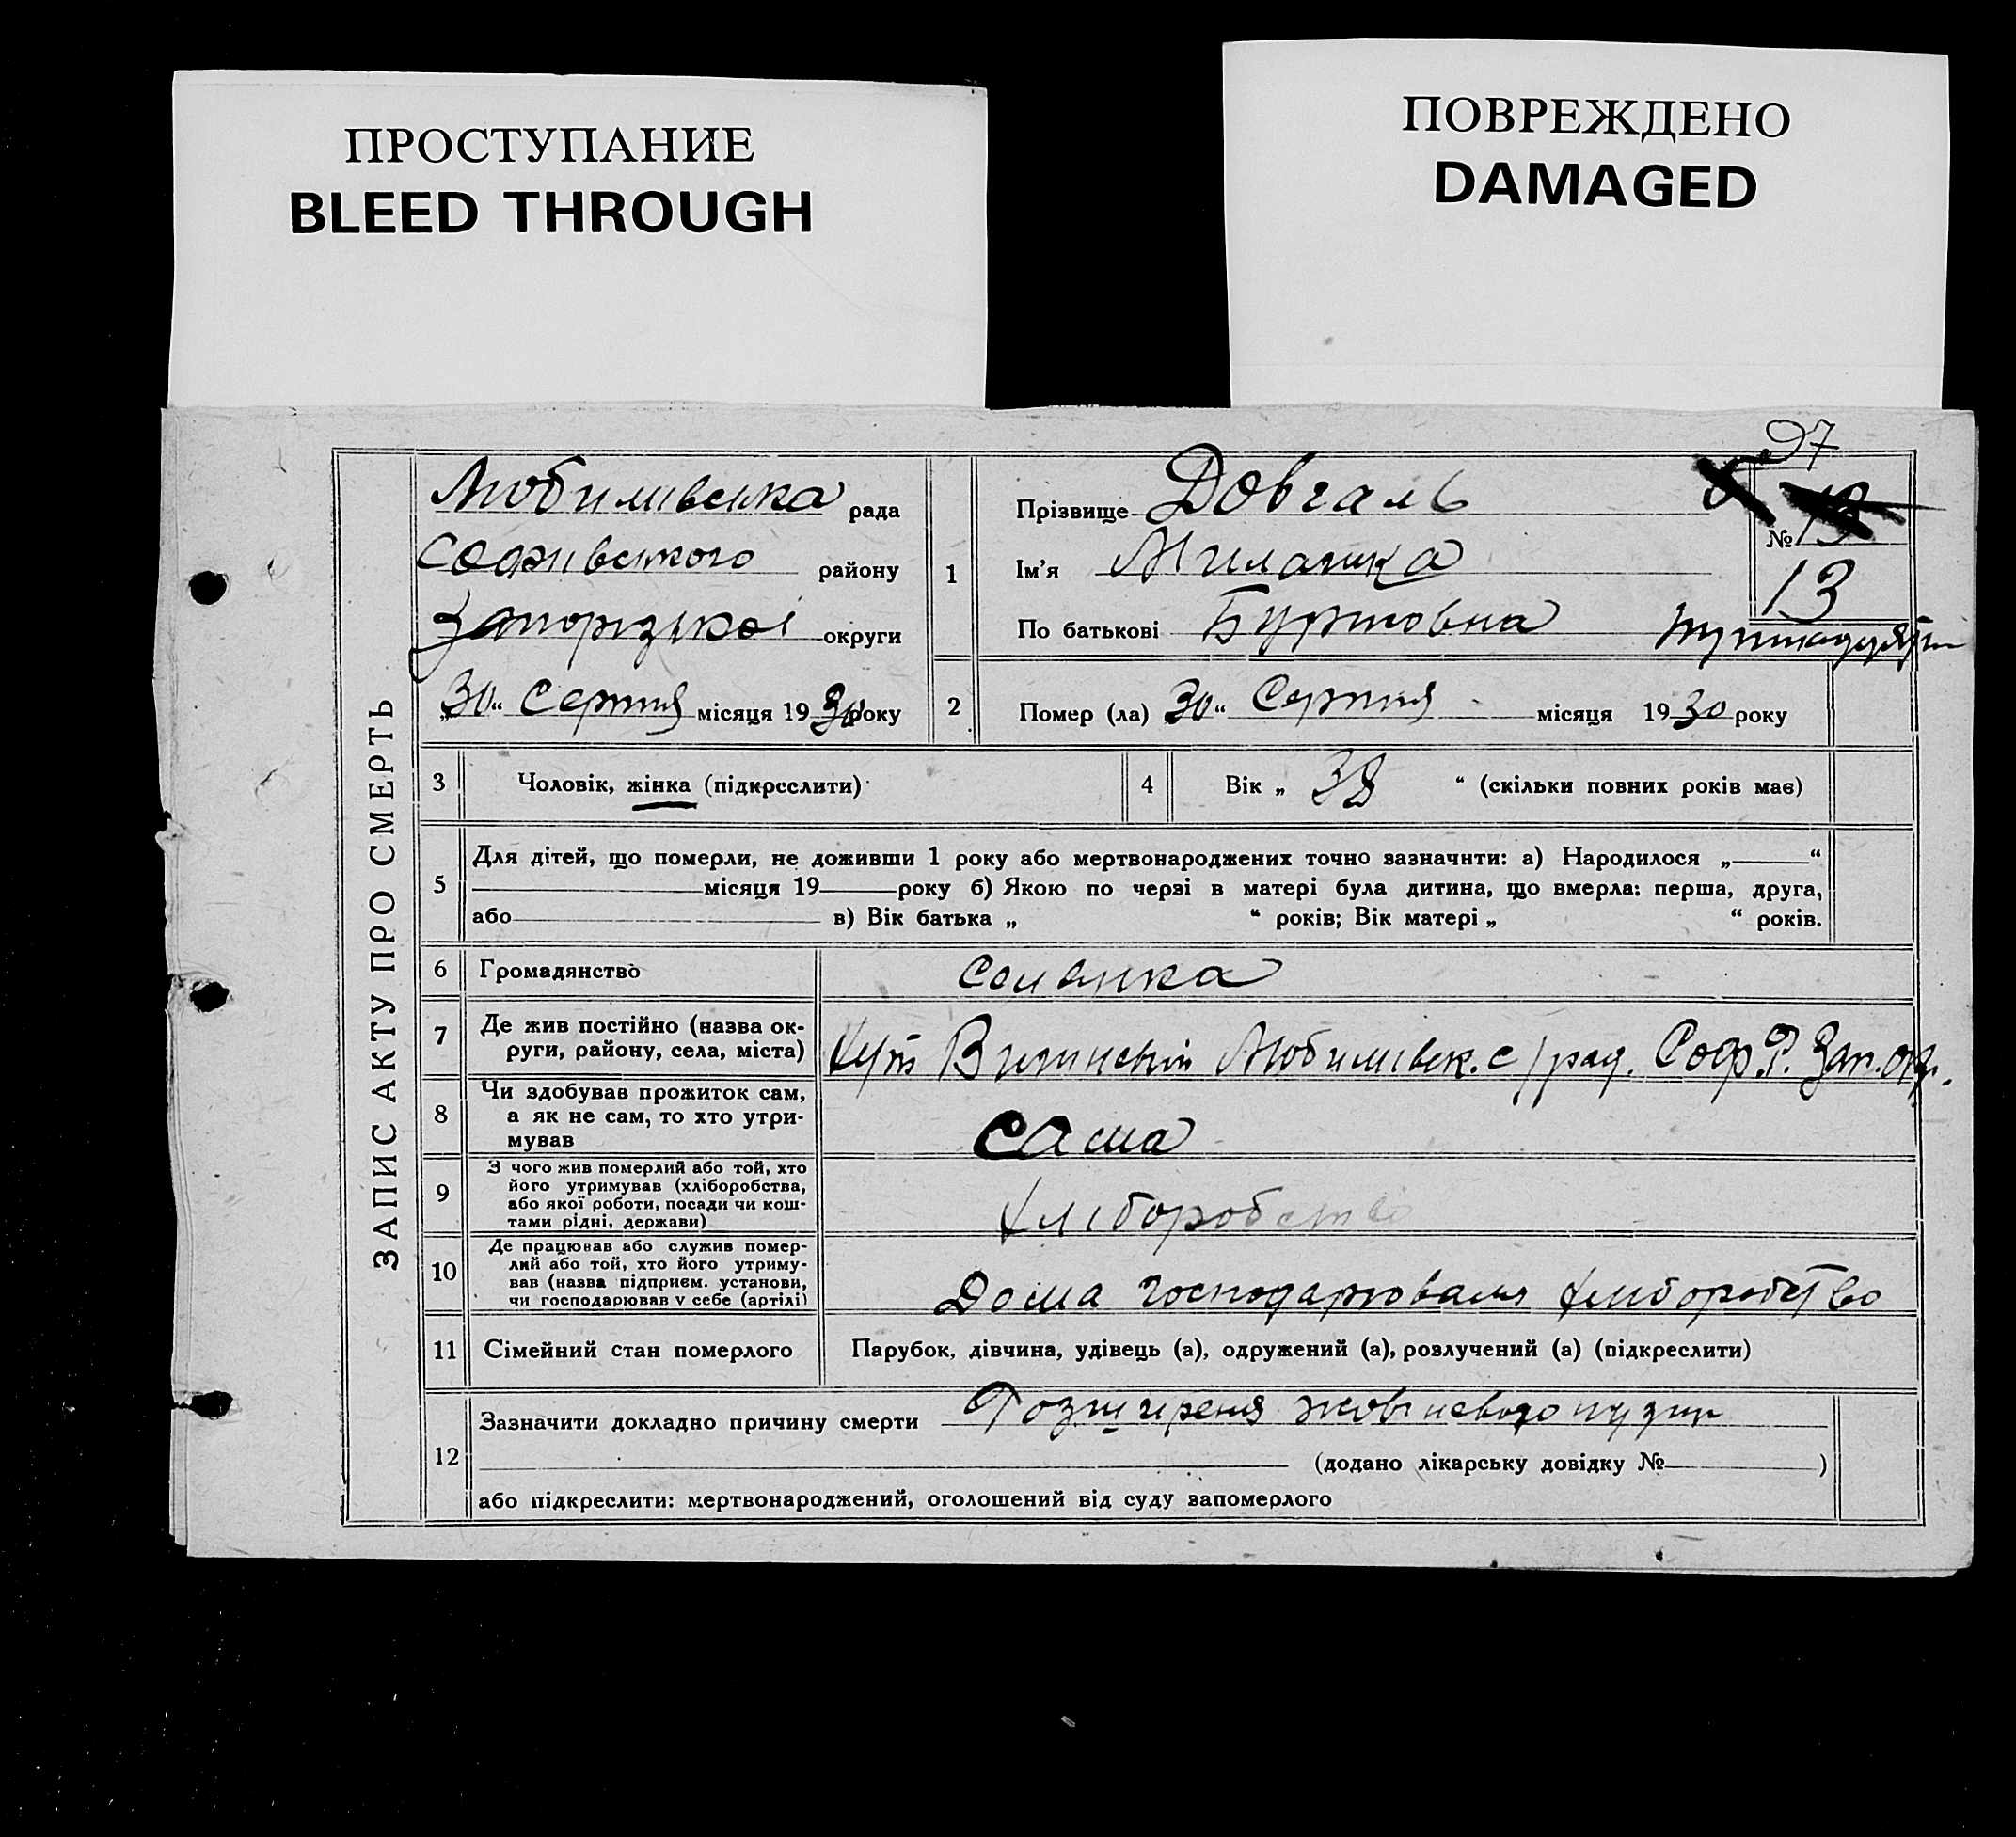 ПРОСТУПАНИЕ
BLEED THROUGH
ПОВРЕЖДЕНО
DAMAGED
97
ЗАПИС АКТУ ПРО СМЕРТЬ
Любимівська рада
Софиївського району
Запорізької округи
„30“ Серпня місяця 1930 року
1
Прізвище Довгаль
Ім'я
По батькові
№ 13
13
2
Помер (ла) 30“ Серпня місяця 1930 року
3
Чоловік, жінка (підкреслити)
4
Вік „ 38 “ (скільки повних років має)
5
Для дітей, що померли, не доживши 1 року або мертвонароджених точно зазначити: а) Народилося „ “
місяця 19 року б) Якою по черзі в матері була дитина, що вмерла: перша, друга,
або в) Вік батька „ “ років; Вік матері „ “ років.
6
Громадянство
Селянка
7
Де жив постійно (назва ок-
руги, району, села, міста)
Хут Любимівск. с/рад. Соф. Р. Зап. окр.
8
Чи здобував прожиток сам,
а як не сам, то хто утри-
мував
сама
9
З чого жив померлий або той, хто
його утримував (хліборобства,
або якої роботи, посади чи кош-
тами рідні, держави)
хліборобство
10
Де працював або служив помер-
лий або той, хто його утриму-
вав (назва підприєм. установи,
чи господарював у себе (артілі)
Дома хліборобство
11
Сімейний стан померлого
Парубок, дівчина, удівець (а), одружений (а), розлучений (а) (підкреслити)
12
Зазначити докладно причину смерти
(додано лікарську довідку № )
або підкреслити: мертвонароджений, оголошений від суду запомерлого